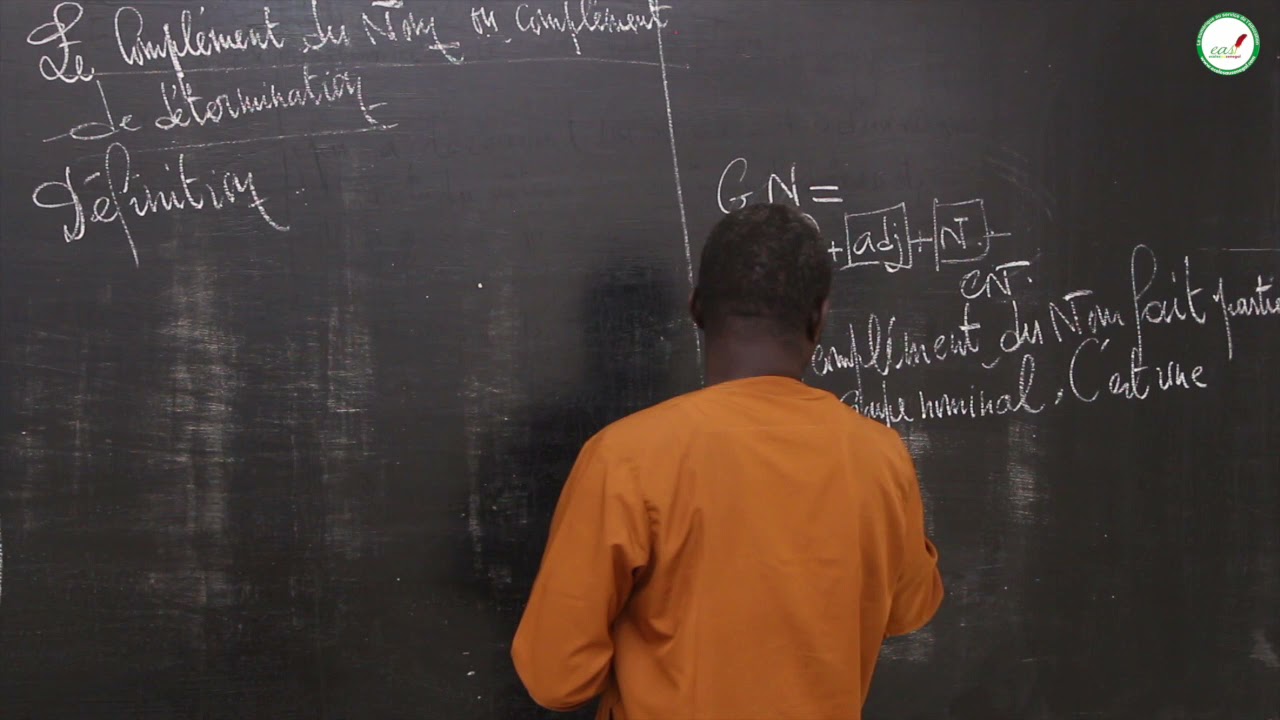 Le Complément du Nom ou complément
de détermination
Définition
GN =
+ adj + N.
CN.
complément du Nom fait partie
groupe nominal. C'est une
eas